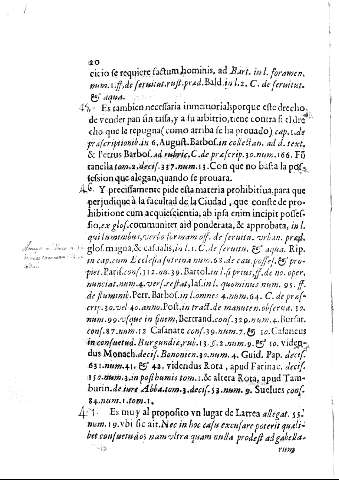 20
cicio se requiere factum hominis, ad Bart. in l. foramen,
num. 1. ff. de seruitut. rust. præd. Bald. in l. 2. C. de seruitut.
& aqua.
45. Es tambien necessaria inmemorial, porque este drecho
de vender pan sin tassa, y a su arbitrio, tiene contra si el dre-
cho que le repugna (como arriba se ha prouado) cap. 1. de
præscriptionib. in 6, August. Barbos. in collectan. ad d. text.
& Petrus Barbos. ad rubric. C. de præscrip. 30. num. 166. Fō
tanella tom. 2. decis. 337. num. 13. Con que no basta la pos-
session que alegan, quando se prouara.
46. Y precissamente pide esta materia prohibitiua, para que
perjudique à la facultad de la Ciudad, que conste de pro-
hibitione cum acquiescientia, ab ipsa enim incipit posses-
sio, ex glos. communiter aid ponderata, & approbata, in l.
qui luminibus, verbo formam off. de seruitu. vrban. præd.
glos. magna, & casualis, in l. 1. C. de seruitu. & aqua. Rip.
in cap. cum Ecclesia sutrina num. 68. de cau. posses. & pro-
priet. Paris. cons. 312. nu. 39. Bartol. in l. si prius, ff. de no. oper.
nunciat. num. 4. vers. restat, Ias. in l. quominus num. 95. ff.
de fluminib. Petr. Barbos. in l. omnes 4. num. 64. C. de præs-
crip. 30. vel 40. anno. Post. in tradt. de manuten. obserua. 52.
num. 99. vsque in finem, Bertrand. cons. 329. num. 4. Bursat.
cons. 87. num. 12 Casanate cons. 39. num. 7. & 10. Casaneus
in consuetud. Burgundiæ, rub. 13. §. 2. num. 9. & 10. viden-
dus Monach. decis. Bononien. 30. num. 4. Guid. Pap. decis.
631. num. 41. & 42. videndus Rota, apud Farinac. decis.
150. num. 3. in posthumis tom. 1. & altera Rota, apud Tam-
burin. de iure Abba. tom. 3. decis. 53. num. 9. Suelues cons.
84. num. 1. tom. 1.
47. Es muy al proposito vn lugar de Larrea allegat. 55.
num. 19. vbi sic ait. Nec in hoc casu excusare poterit quali-
bet consuetudo: nam vltra quam nulla prodest ad gabella-
rum